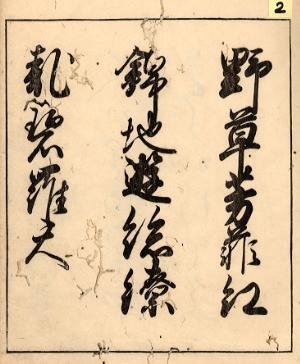 2
野草芳菲紅
錦地遊絲繚
亂碧羅天